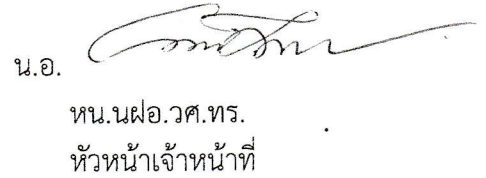 น.อ.
หน.นฝอ.วศ.ทร.
หัวหน้าเจ้าหน้าที่